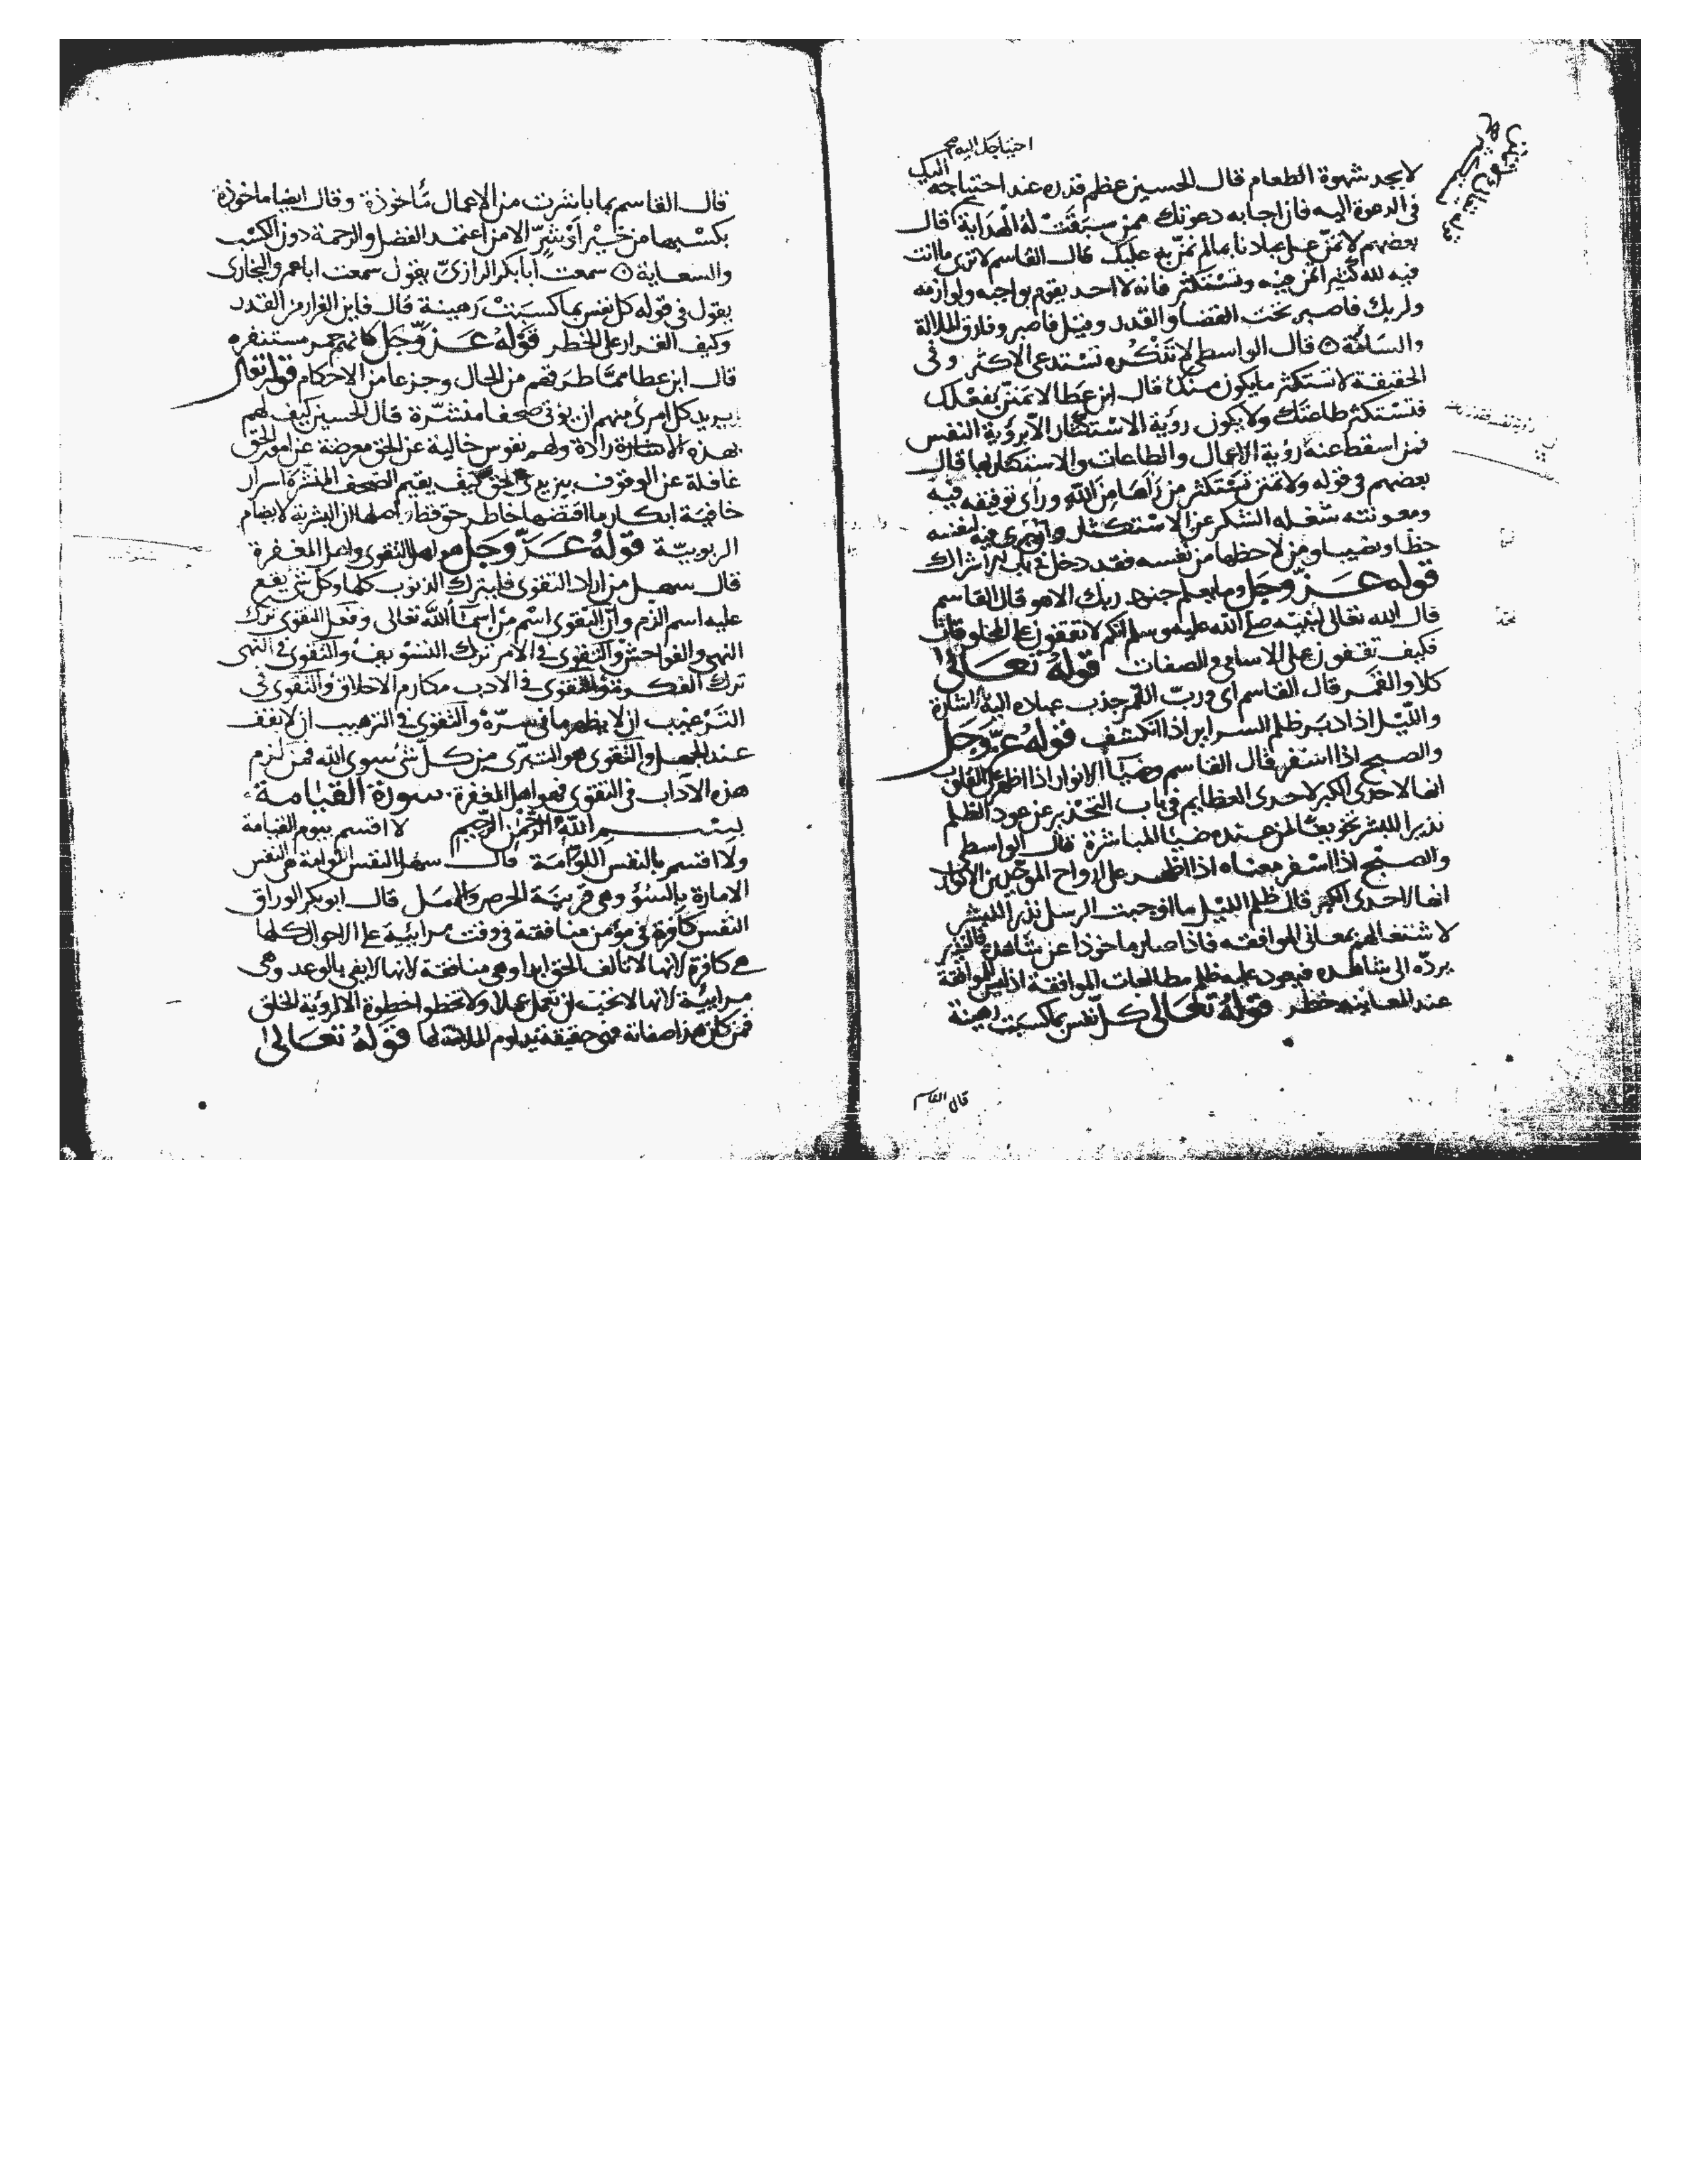 احتياجك اليه صح
لا يجد شهوة الطعام قال الحسين عظم قدره عند احتياجه اليك
في الدعوة اليه فان اجابه دعوتك ممن سبقت له الهداية قال
بعضهم لا تمنن على عبادنا بما لم نمنن به عليك قال القاسم لا ترى ما انت
فيه لله كثيرا تمن فيه وتستكثر فانه لا احد يقوم بواجبه ولوازمه
ولربك فاصبر تحت القضا والقدر وقيل فاصبر وفارق الملالة
والسامة ه قال الواسطي لا تتكره تستدعي الاكثر وفي
الحقيقة لا تستكثر ما يكون منك قال ابن عطا لا تمنن بفعلك
فتستكثر طاعتك ولا يكون رؤية الاستكثار الا برؤية النفس
فمن اسقط عنه رؤية الاعمال والطاعات والاستكثار لها قال
بعضهم في قوله ولا تمنن تستكثر من رآها من الله ورأى توفيقه فيه
ومعونته شغله الشكر عن الاستكثار وان يرى فيه لنفسه
حظا ونصيبا ومن لاحظها من نفسه فقد دخل في باب الاشراك
قوله عز وجل وما يعلم جنود ربك الا هو قال القاسم
قال الله تعالى لنبيه صلى الله عليه وسلم انكم لا تقفون على المخلوقات
فكيف تقفون على الاسامي والصفات قوله تعالى
كلا والقمر قال القاسم اى ورب القمر جذب عباده اليه باشارة
والليل اذا دبر ظلم السراير اذا انكشف قوله عز وجل
والصبح اذا اسفر قال القاسم وضيا الانوار اذا اظهر على القلوب
انها لاحدى الكبر لاحدى العظايم في باب التحذير عن عود الظلم
نذيرا للبشر تخويفا لمن عنده ضيا المباشرة قال الواسطي
والصبح اذا اسفر معناه اذا اظهر على ارواح الموحدين الانوار
انها لاحدى الكبر قال ظلم الليل ما اوجبت الرسل نذيرا للبشر
لاشتغالهم بمعاني الموافقه فاذا صار ماخوذا عن شاهده فالنذير
يرده الى شاهده فيعود عليه ظلم مطالعات الموافقة اذ ليس للموافقة
عند المعاينه خطر قوله تعالى كل نفس بما كسبت رهينة
قال القاسم
قال القاسم بما باشرت من الاعمال مأخوذة وقال ايضا ماخوذة
بكسبها من خير او شر الا من اعتمد الفضل والرحمة دون الكسب
والسعاية ه سمعت ابا بكر الرازي يقول سمعت ابا عمر والبخاري
يقول في قوله كل نفس بما كسبت رهينة قال فاين الفرار من القدر
وكيف القرار على الخطر قوله عز وجل كانهم حمر مستنفره
قال ابن عطا مما طرقهم من الجال وجزعا من الاحكام قوله تعالى
بل يريد كل امرئ منهم ان يؤتى صحفا منشرة قال الحسين كيف لهم
بهذه الاشارة رادة ولهم نفوس خالية عن الحق معرضة عن امور الحق
غافلة عن الوقوف بين يدي الحق كيف يقيم الصحف المنشرة اسرار
خافية ابكار ما اقتضها خاطر حق قط
الربوبية قوله عز وجل هو اهل التقوى واهل المغفرة
قال سهل من اراد التقوى فليترك الذنوب كلها وكل شئ يقع
عليه اسم الذم وان التقوى اسم من اسما الله تعالى وفعل التقوى ترك
النهي والفواحش والتقوى في الامر ترك التسويف والتقوى في النهى
ترك الفكرة والتقوى في الادب مكارم الاخلاق والتقوى في
الترغيب ان لا يظهر ما في سره والتقوى في الترهيب ان لا تقف
عند الجهل والتقوى هو التبرى من كل شئ سوى الله فمن لزم
هذه الاداب في التقوى فهو اهل المغفرة سورة القيامة
بسم الله الرحمن الرحيم لا اقسم بيوم القيامة
ولا اقسم بالنفس اللوامة قال سهل النفس اللوامة هي النفس
الامارة بالسوء وهي قرينة الحرص والامل قال ابو بكر الوراق
النفس كافرة في مؤمن منافقة في وقت مرايية على الاحوال كلها
هي كافرة لانها لا تالف الحق ابدا وهي منافقة لانها لا يفي بالوعد وهي
مرايية لانها لا تحب ان تعمل عملا ولا تخطوا خطوة الا لرؤية الخلق
فمن كان هذا صفاته فهي حقيقة بدوام الملامة لها قوله تعالى